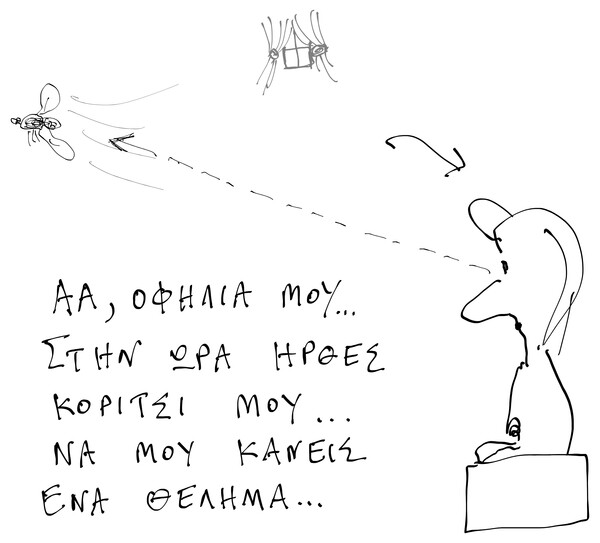 ΑΑ, ΟΦΗΛΙΑ ΜΟΥ...
ΣΤΗΝ ΩΡΑ ΗΡΘΕΣ
ΚΟΡΙΤΣΙ ΜΟΥ...
ΝΑ ΜΟΥ ΚΑΝΕΙΣ
ΕΝΑ ΘΕΛΗΜΑ...